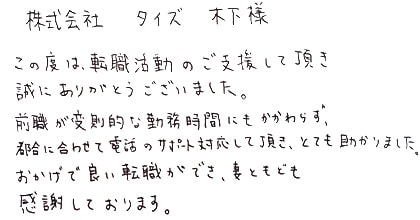 株式会社 タイズ 木下様
この度は、転職活動のご支援して頂き
誠にありがとうございました。
前職が変則的な勤務時間にもかかわらず、
都合に合わせて電話のサポート対応して頂き、とても助かりました。
おかげで良い転職ができ、妻ともども
感謝しております。